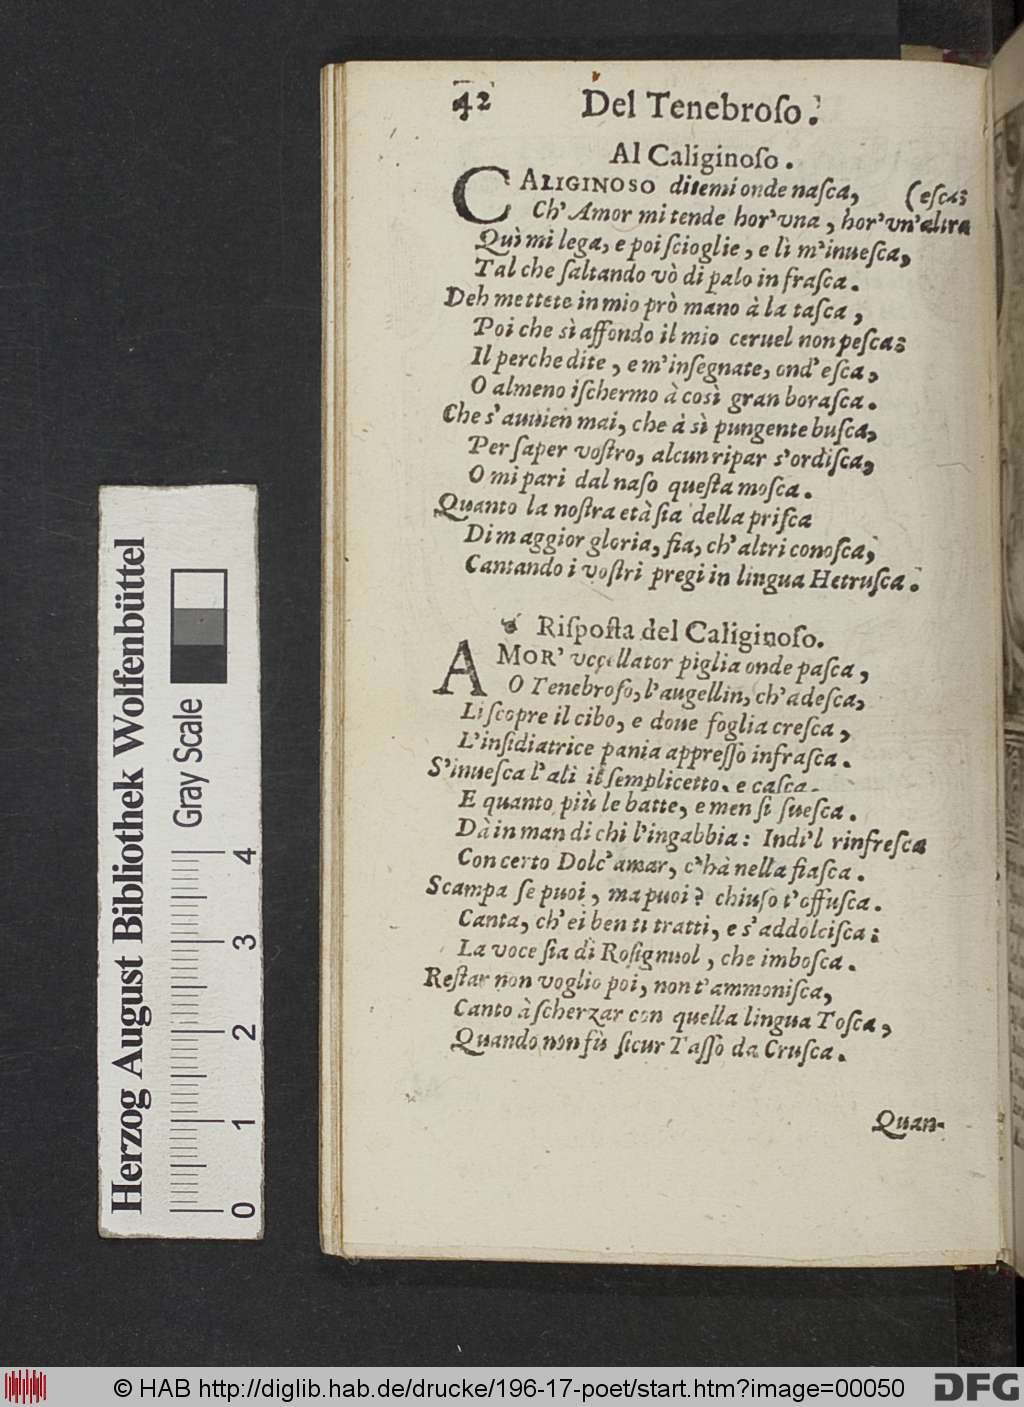 42 Del Tenebroſo.
Al Caliginoſo.
CALIGINOSO ditemi onde naſca, (eſca;
Ch' Amor mi tende hor'vna, hor'vn'altra
Quì mi lega, e poi ſcioglie, e lì m'inueſca,
Tal che ſaltando vò di palo in fraſca.
Deh mettete in mio prò mano à la taſca,
Poi che sì affondo il mio ceruel non peſca;
Il perche dite, e m'inſegnate, ond'eſca,
O almeno iſchermo à così gran boraſca.
Che s'auuien mai, che à sì pungente buſca,
Per ſaper voſtro, alcun ripar s'ordiſca,
O mi pari dal naſo queſta moſca.
Quanto la noſtra età ſia della priſca
Di maggior gloria, fia, ch'altri conoſca,
Cantando i voſtri pregi in lingua Hetruſca.
Riſpoſta del Caliginoſo.
AMOR' vccellator piglia onde paſca,
O Tenebroſo, l'augellin, ch'adeſca,
Li ſcopre il cibo, e doue foglia creſca,
L'inſidiatrice pania appreſſo infraſca.
S'inueſca l'ali il ſemplicetto, e caſca.
E quanto più le batte, e men ſi ſueſca.
Dà in man di chi l'ingabbia: Indi'l rinfreſca
Con certo Dolc'amar, c'hà nella fiaſca.
Scampa ſe puoi, ma puoi? chiuſo t'offuſca.
Canta, ch'ei ben ti tratti, e s'addolciſca;
La voce ſia di Roſignuol, che imboſca.
Reſtar non voglio poi, non t'ammoniſca,
Canto à ſcherzar con quella lingua Toſca,
Quando non fù ſicur Taſſo da Cruſca.
Quan-
Herzog August Bibliothek Wolfenbüttel
Gray Scale
0 1 2 3 4
© HAB http://diglib.hab.de/drucke/196-17-poet/start.htm?image=00050
DFG